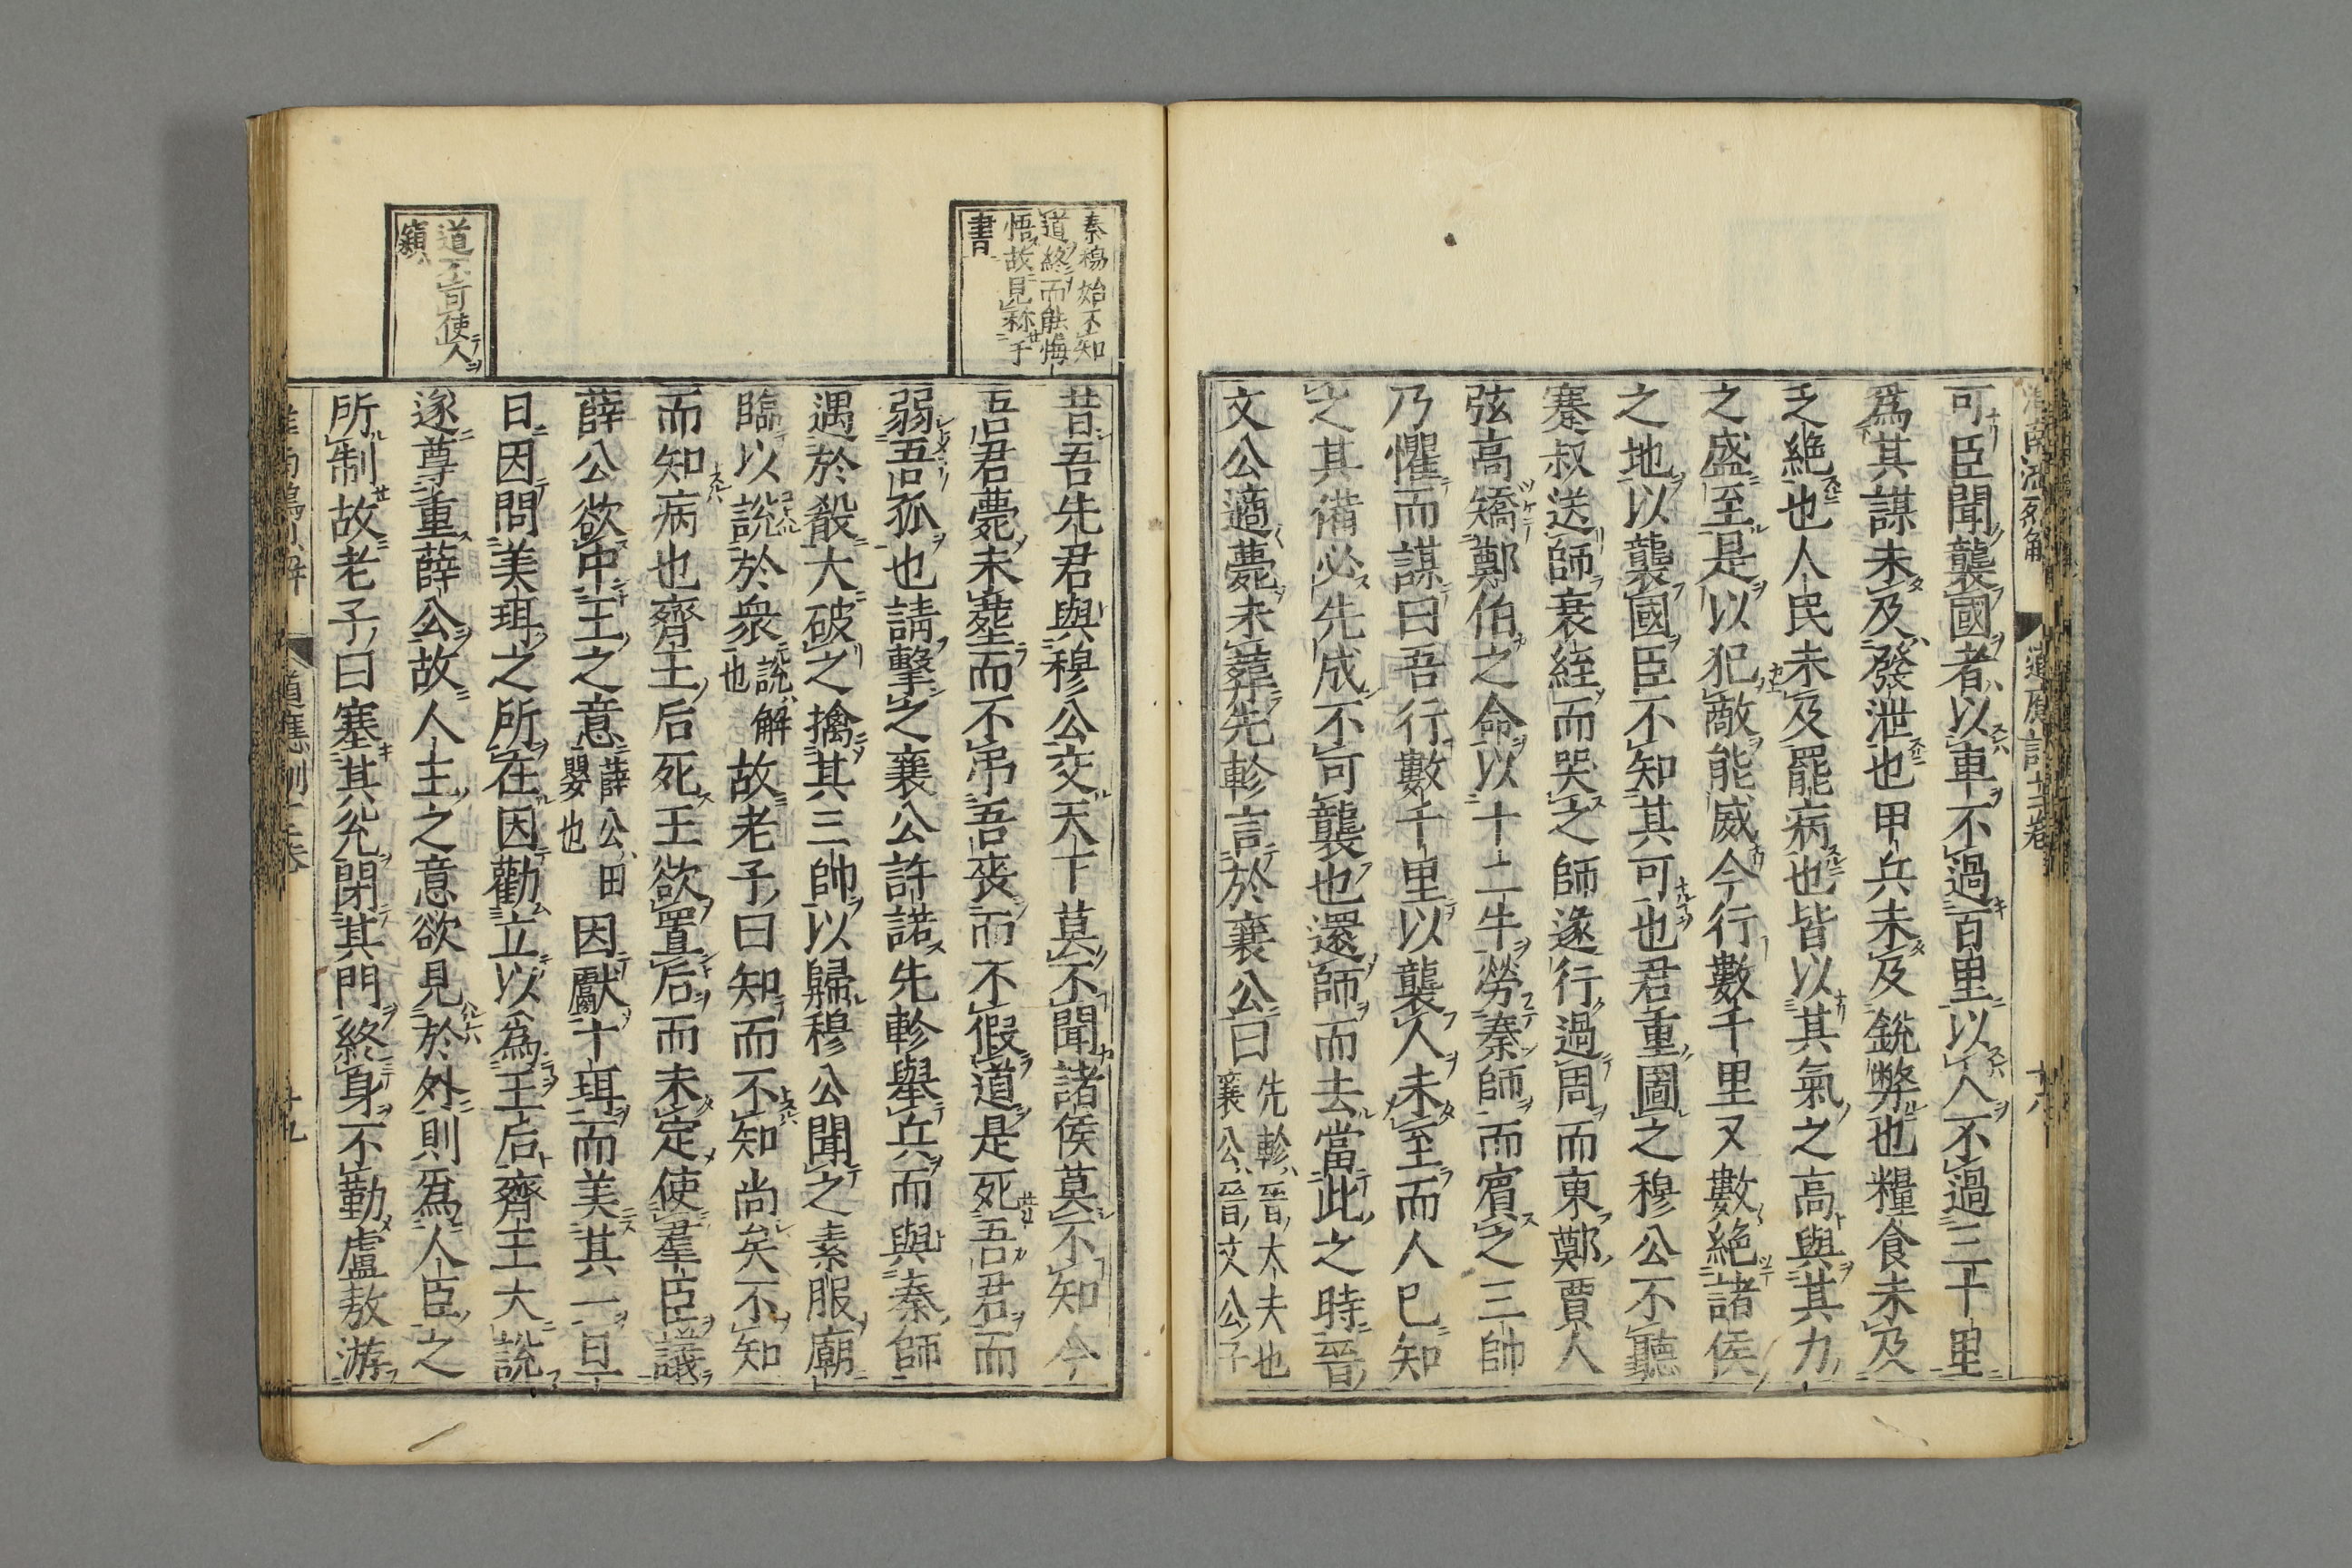 可臣聞襲國者以車不過百里以人不過三十里
爲其謀未及發泄也甲兵未及銳弊也糧食未及
乏絶也人民未及罷病也皆以其氣之高與其力
之盛至是以犯敵能威今行數千里又數絶諸侯
之地以襲國臣不知其可也君重圖之穆公不聽
蹇叔送師衰絰而哭之師遂行過周而東鄭賈人
弦高矯鄭伯之命以十二牛勞秦師而賓之三帥
乃懼而謀曰吾行數千里以襲人未至而人已知
之其備必先成不可襲也還師而去當此之時晉
文公適薨未葬先軫言於襄公曰先軫晉大夫也
襄公晉文公子
秦穆始不知
道終而能悔
悟故見称于
書
昔吾先君與穆公交天下莫不聞諸侯莫不知今
吾君薨未塟而不吊吾喪而不假道是死吾君而
弱吾孤也請擊之襄公許諾先軫舉兵而與秦師
遇於殽大破之擒其三帥以歸穆公聞之素服廟
臨以說於衆說解也故老子曰知而不知尚矣不知
而知病也齊王后死王欲置后而未定使羣臣議
薛公欲中王之意薛公田嬰也因獻十珥而美其一旦
日因問美珥之所在因勸立以爲王后齊王大說
遂尊重薛公故人主之意欲見於外則爲人臣之
所制故老子曰塞其兊閉其門終身不勤盧敖游
道不可使人
窺
道應訓十二卷
十九